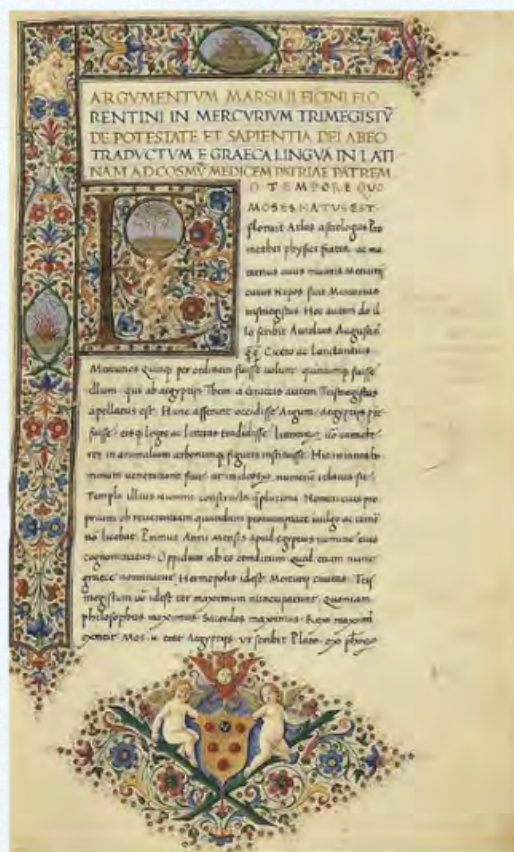 ARGVMENTVM MARSILII FICINI FLO
RENTINI IN MERCVRIVM TRIMEGISTŪ
DE POTESTATE ET SAPIENTIA DEI AB EO
TRADVCTVM E GRAECA LINGVA IN LATI
NAM AD COSMŪ MEDICEM PATRIAE PATREM
E O TEMPORE QVO
MOSES NATVS EST·
floruit Atlas astrologus Pro
methei physici frater ac ma
ternus auus maioris Mercurij
cuius Nepos fuit Mercurius
trismegistus Hoc autem de il
lo scribit Aurelius Augustin'
Cicero ac Lanctantius
Mercurios quinq; per ordinem fuisse uolunt quintumq; fuisse
illum qui ab aegyptijs Them a Graecis autem Trismegistus
apellatus est· Hunc asserunt occidisse Argum· Aegyptijs pre
fuisse· eisq; leges ac litteras tradidisse·
res in animalium arborumq; figuris instituisse· Hic in tanta ho
minum ueneratione fuit· ut in numerū relatus sit·
Templa illius numini constructa q̄plurima· Nomen eius pro
prium ob reuerentiam quandam pronuntiare uulgo ac
nō licebat· Primus Anni Mensis apud egyptios nomine eius
cognominatus· Oppidum ab eo conditum quod etiam nunc
graece nominatur Hermopolis idest Mercurij ciuitas· Tris
megistum ū idest ter maximum nuncuparunt· quoniam
philosophus maximus· Sacerdos maximus· Rex maxim'
extitit· Mos· n· erat Aegyptijs· ut scribit Plato·